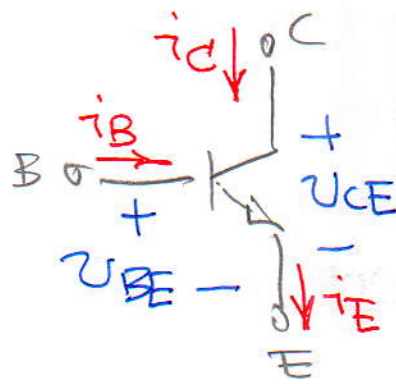 iC
C
iB
B
+
+
vCE
vBE
−
−
iE
E